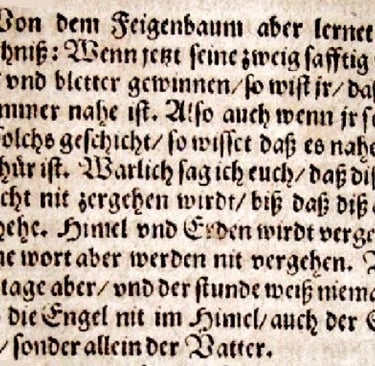 Von dem Feigenbaum aber lernet
chniß: Wenn jetzt seine zweig safftig
vnd bletter gewinnen/ so wist jr/ daß
ommer nahe ist. Also auch wenn jr se
solchs geschicht/ so wisset daß es nahe
thür ist. Warlich sag ich euch/ daß diß
cht nit zergehen wirdt/ biß daß diß
hehe. Himel vnd Erden wirdt verge
ne wort aber werden nit vergehen.
tage aber/ vnd der stunde weiß niema
die Engel nit im Himel/ auch der
/ sonder allein der Vatter.